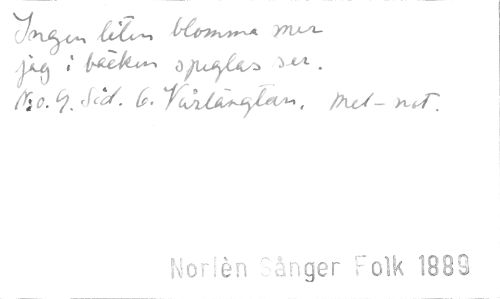 Ingen liten blomma mer
jag i bäcken speglas ser.
N:o. 9. Sid. 6. Vårlängtan. Mel-not.
Norlèn Sånger Folk 1889